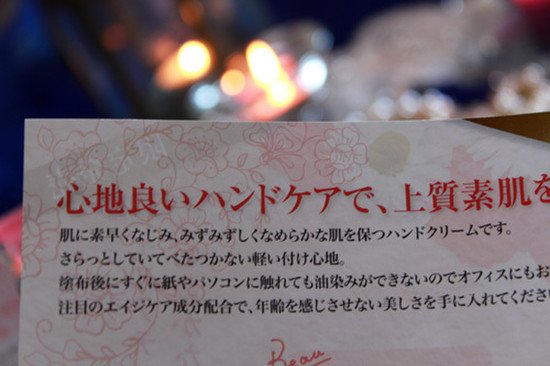 心地良いハンドケアで、上質素肌を
肌に素早くなじみ、みずみずしくなめらかな肌を保つハンドクリームです。
さらっとしていてべたつかない軽い付け心地。
塗布後にすぐに紙やパソコンに触れても油染みができないのでオフィスにもお
注目のエイジケア成分配合で、年齢を感じさせない美しさを手に入れてくださ
Beau